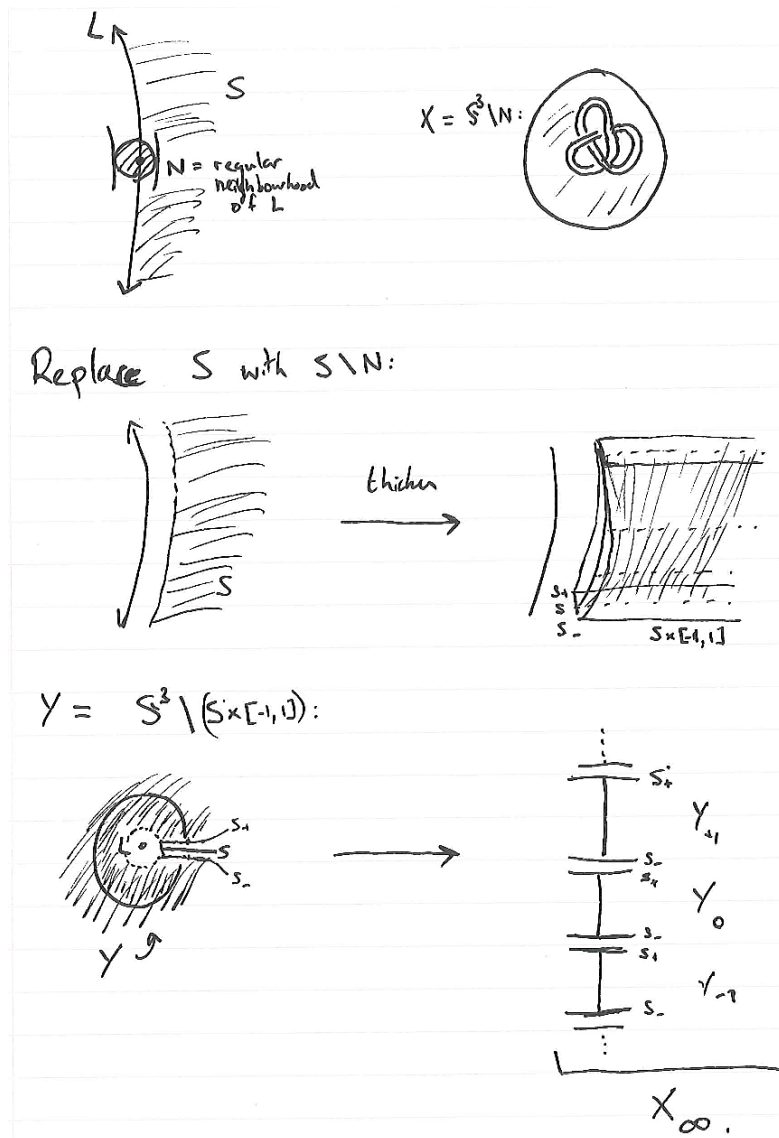 L
S
X = S³\N:
N = regular
neighbourhood
of L
Replace S with S\N:
thicken
S
S+
S
S-
S×[-1,1]
Y = S³\(S×[-1,1]):
S+
L
S
S-
Y
S+
Y+1
S-
S+
Y0
S-
S+
Y-1
S-
X∞.